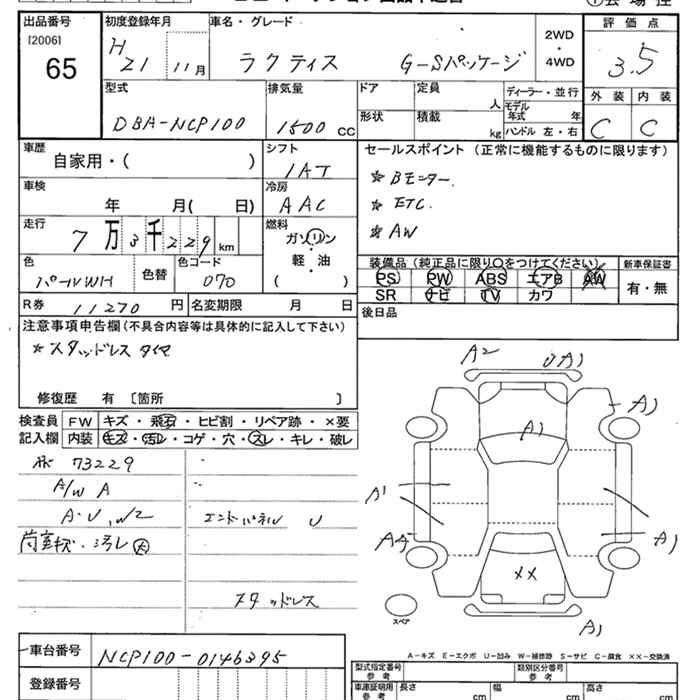 出品番号
[2006]
65
初度登録年月
H
21 11月
車名・グレード
ラクティス G-Sパッケージ
2WD
・
4WD
評価点
3.5
外装 内装
C C
型式
DBA-NCP100
排気量
1500 CC
ドア
定員
人
ディーラー・並行
モデル年式 年
形状
積載
kg
ハンドル 左・右
車歴
自家用・( )
シフト
IAT
車検
年 月( 日)
冷房
AAC
走行
7万3千229 km
燃料
ガソリン
・
軽・油
( )
色
パールWH
色替
色コード
070
R券 11270 円
名変期限 月 日
セールスポイント (正常に機能するものに限ります)
* Bモニター.
* ETC.
* AW
装備品 (純正品に限り○をつけてください)
PS PW ABS エアB AW
SR ナビ TV カワ
新車保証書
有・無
後日品
注意事項申告欄(不具合内容等は具体的に記入して下さい)
* スタッドレスタイヤ
修復歴 有 [箇所 ]
検査員
記入欄
FW キズ・飛石・ヒビ割・リペア跡・×要
内装 キズ・汚レ・コゲ・穴・スレ・キレ・破レ
73229
A/W A
A・U,W2
荷室キズ・汚レ大
エンドパネル U
スタッドレス
A2 UA1
A1
A1
A1
A4
A1
××
A1
スペア
A-キズ E-エクボ U-凹み W-補修跡 S-サビ C-腐食 ××-交換済
車台番号
NCP100-0146395
登録番号
型式指定番号
参考
類別区分番号
参考
車庫証明用
参考
長さ cm
幅 cm
高さ cm